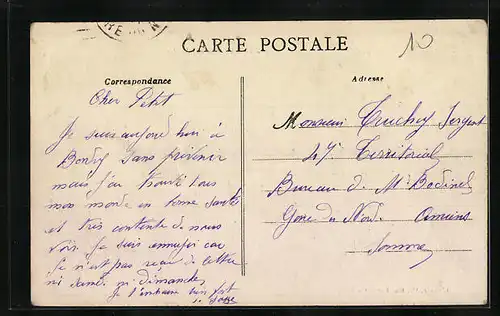 CARTE POSTALE
10
Correspondance
Cher Petit
Je suis aujourd hui à
Bondy sans prévenir
mais j'ai trouvé tous
mon monde en bonne santé
et très contente de nous
voir. Je suis ennuyé car
Je n'est pas reçu de lettre
ni samedi ni dimanche
Je t'embrasse bien fort
Adresse
Monsieur Sergent
27e Territorial
Bureau de Mr
Gare du Nord. Amiens
Somme